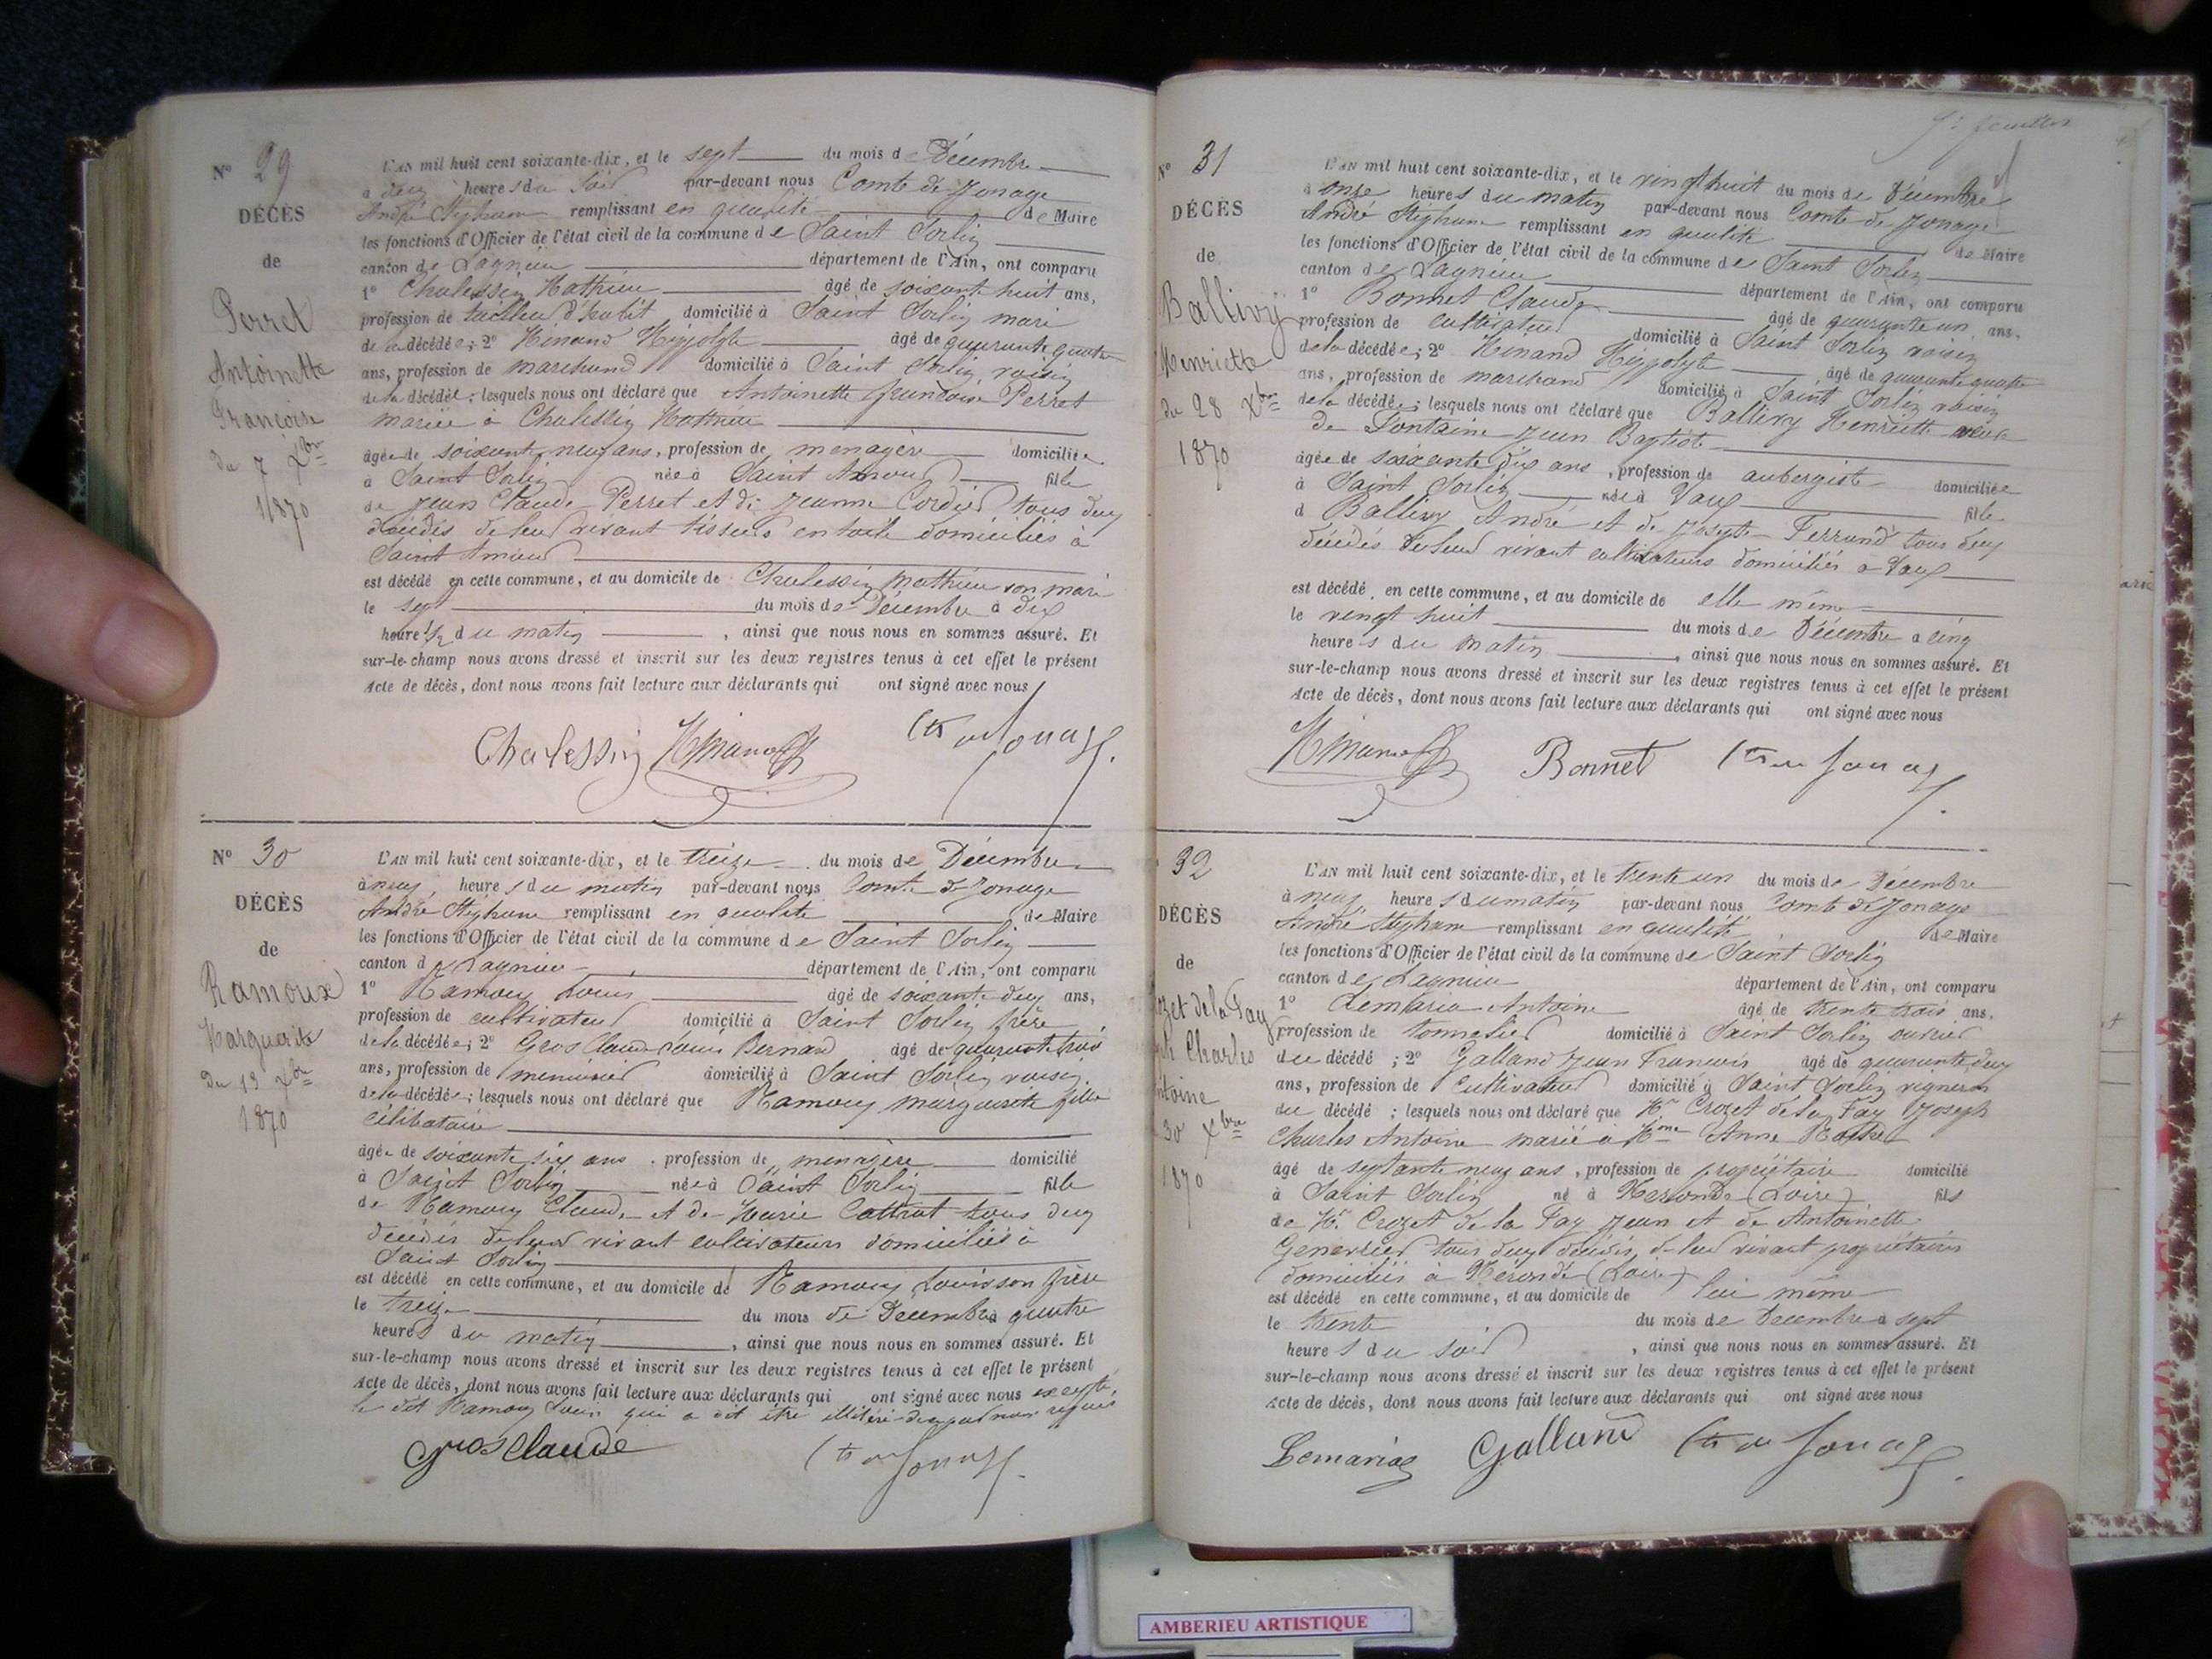 N° 29
DÉCÈS
de
Perret
Antoinette
Françoise
du 7 Xbre
1870
L'AN mil huit cent soixante-dix, et le sept du mois de Décembre
à deux heures du soir par-devant nous Comte de Jonage
André Stéphane remplissant en qualité de Maire
les fonctions d'Officier de l'état civil de la commune de Saint Sorlin
canton de Lagnieu département de l'Ain, ont comparu
1° Chalessin Mathieu âgé de soixante huit ans,
profession de tailleur d'habit domicilié à Saint Sorlin mari
de la décédée; 2° Hinand Hippolyte âgé de quarante quatre
ans, profession de marchand domicilié à Saint Sorlin voisin
de la décédée; lesquels nous ont déclaré que Antoinette Françoise Perret
mariée à Chalessin Mathieu
âgée de soixante neuf ans, profession de menagère domiciliée
à Saint Sorlin née à Saint Amour fille
de Jean Claude Perret et de Jeanne Cordier tous deux
décédés de leur vivant tisseurs en toile domiciliés à
Saint Amour
est décédé en cette commune, et au domicile de Chalessin Mathieu son mari
le sept du mois de Décembre à dix
heure ½ du matin, ainsi que nous nous en sommes assuré. Et
sur-le-champ nous avons dressé et inscrit sur les deux registres tenus à cet effet le présent
Acte de décès, dont nous avons fait lecture aux déclarants qui ont signé avec nous
Chalessin Hinand Cte de Jonage
N° 30
DÉCÈS
de
Ramoux
Marguerite
Du 13 Xbre
1870
L'AN mil huit cent soixante-dix, et le treize du mois de Décembre
à neuf heures du matin par-devant nous Comte de Jonage
André Stéphane remplissant en qualité de Maire
les fonctions d'Officier de l'état civil de la commune de Saint Sorlin
canton de Lagnieu département de l'Ain, ont comparu
1° Ramoux Louis âgé de soixante deux ans,
profession de cultivateur domicilié à Saint Sorlin frère
de la décédée; 2° Gros Claude Louis Bernard âgé de quarante trois
ans, profession de menuisier domicilié à Saint Sorlin voisin
de la décédée; lesquels nous ont déclaré que Ramoux marguerite fille
célibataire
âgée de soixante six ans, profession de menagère domicilié
à Saint Sorlin née à Saint Sorlin fille
de Ramoux Claude et de Marie Cottrat tous deux
décédés de leur vivant cultivateurs domiciliés à
Saint Sorlin
est décédé en cette commune, et au domicile de Ramoux Louis son frère
le treize du mois de Décembre à quatre
heures du matin, ainsi que nous nous en sommes assuré. Et
sur-le-champ nous avons dressé et inscrit sur les deux registres tenus à cet effet le présent
Acte de décès, dont nous avons fait lecture aux déclarants qui ont signé avec nous excepté
le dit Ramoux Louis qui a dit être illitéré de ce par nous requis
Gros Claude Cte de Jonage
N° 31
DÉCÈS
de
Ballivy
Henriette
du 28 Xbre
1870
L'AN mil huit cent soixante-dix, et le vingt huit du mois de Décembre
à onze heures du matin par-devant nous Comte de Jonage
André Stéphane remplissant en qualité de Maire
les fonctions d'Officier de l'état civil de la commune de Saint Sorlin
canton de Lagnieu département de l'Ain, ont comparu
1° Bonnet Claude âgé de quarante un ans,
profession de cultivateur domicilié à Saint Sorlin voisin
de la décédée; 2° Hinand Hippolyte âgé de quarante quatre
ans, profession de marchand domicilié à Saint Sorlin voisin
de la décédée; lesquels nous ont déclaré que Ballivy Henriette veuve
de Fontaine Jean Baptiste
âgée de soixante dix ans, profession de aubergiste domiciliée
à Saint Sorlin née à Vaux fille
d Ballivy André et de Josepte Ferrand tous deux
décédés de leur vivant cultivateurs domiciliés à Vaux
est décédé, en cette commune, et au domicile de elle même
le vingt huit du mois de Décembre à cinq
heures du matin, ainsi que nous nous en sommes assuré. Et
sur-le-champ nous avons dressé et inscrit sur les deux registres tenus à cet effet le présent
Acte de décès, dont nous avons fait lecture aux déclarants qui ont signé avec nous
Hinand Bonnet Cte de Jonage
32
DÉCÈS
de
ozet de la Fay
ph Charles
ntoine
30 Xbre
1870
L'AN mil huit cent soixante-dix, et le trente un du mois de Décembre
à neuf heures du matin par-devant nous Comte de Jonage
André Stéphane remplissant en qualité de Maire
les fonctions d'Officier de l'état civil de la commune de Saint Sorlin
canton de Lagnieu département de l'Ain, ont comparu
1° Lemaria Antoine âgé de trente trois ans,
profession de tonnelier domicilié à Saint Sorlin ouvrier
du décédé; 2° Galland Jean Francois âgé de quarante deux
ans, profession de Cultivateur domicilié à Saint Sorlin vigneron
du décédé; lesquels nous ont déclaré que Mr Crozet de la Fay Joseph
Charles Antoine marié à Mme Anne
âgé de septante neuf ans, profession de propriétaire domicilié
à Saint Sorlin né à (Loire) fils
de Mr. Crozet de la Fay Jean et de Antoinette
Genevrier tous deux décédés, de leur vivant propriétaires
domiciliés à (Loire)
est décédé en cette commune, et au domicile de lui même
le trente du mois de Decembre à sept
heures du soir, ainsi que nous nous en sommes assuré. Et
sur-le-champ nous avons dressé et inscrit sur les deux registres tenus à cet effet le présent
Acte de décès, dont nous avons fait lecture aux déclarants qui ont signé avec nous
Lemarias Galland Cte de Jonage
AMBERIEU ARTISTIQUE